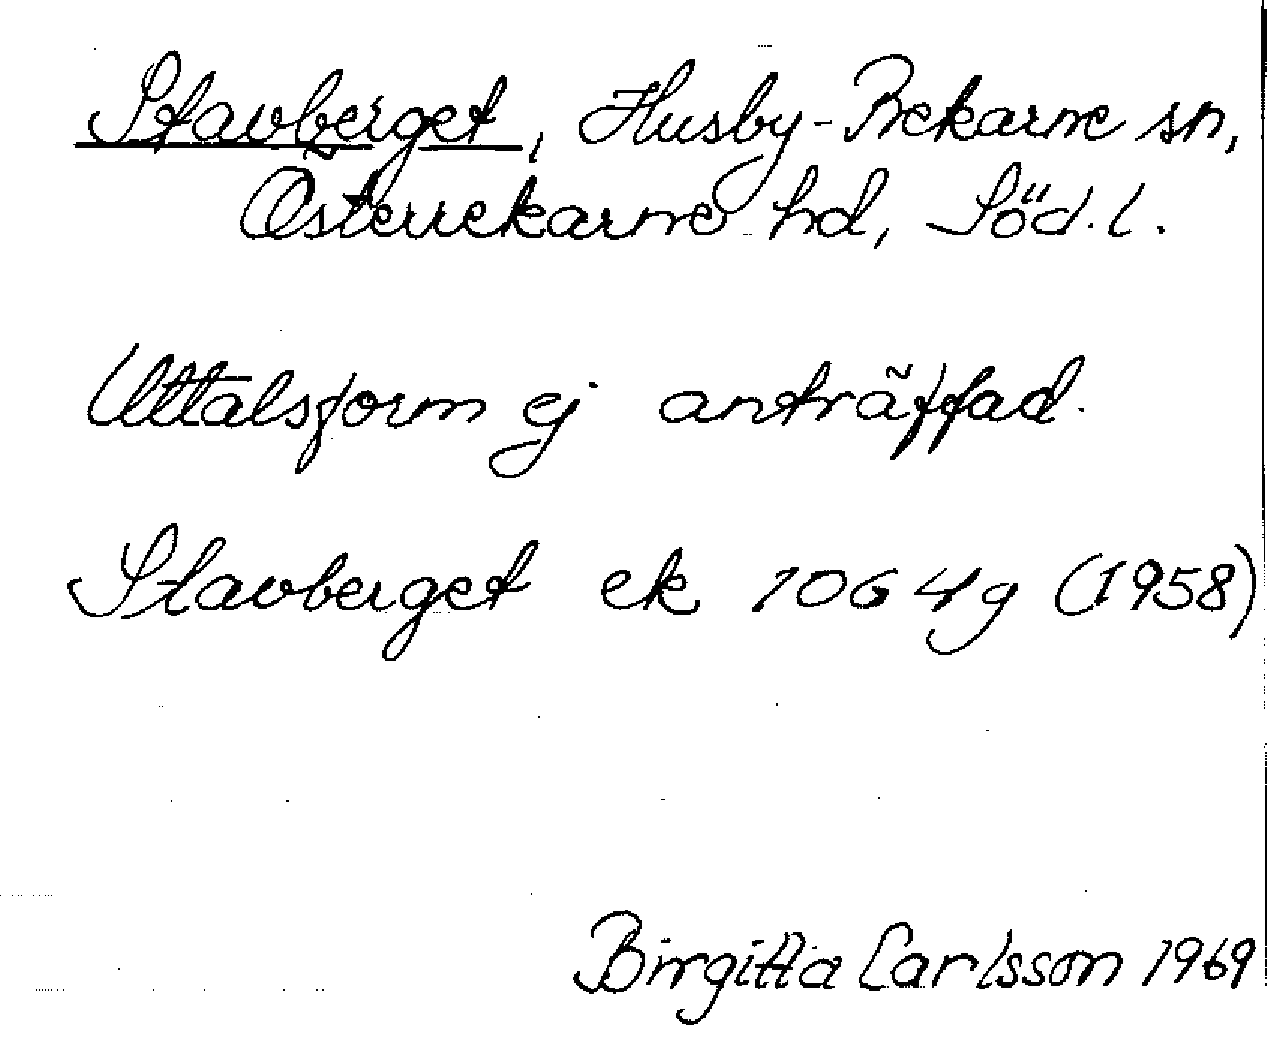 Stavberget, Husby-Rekarne sn,
Österrekarne hd, Söd.l.
Uttalsform ej anträffad.
Stavberget ek 10G4g (1958)
Birgitta Carlsson 1969